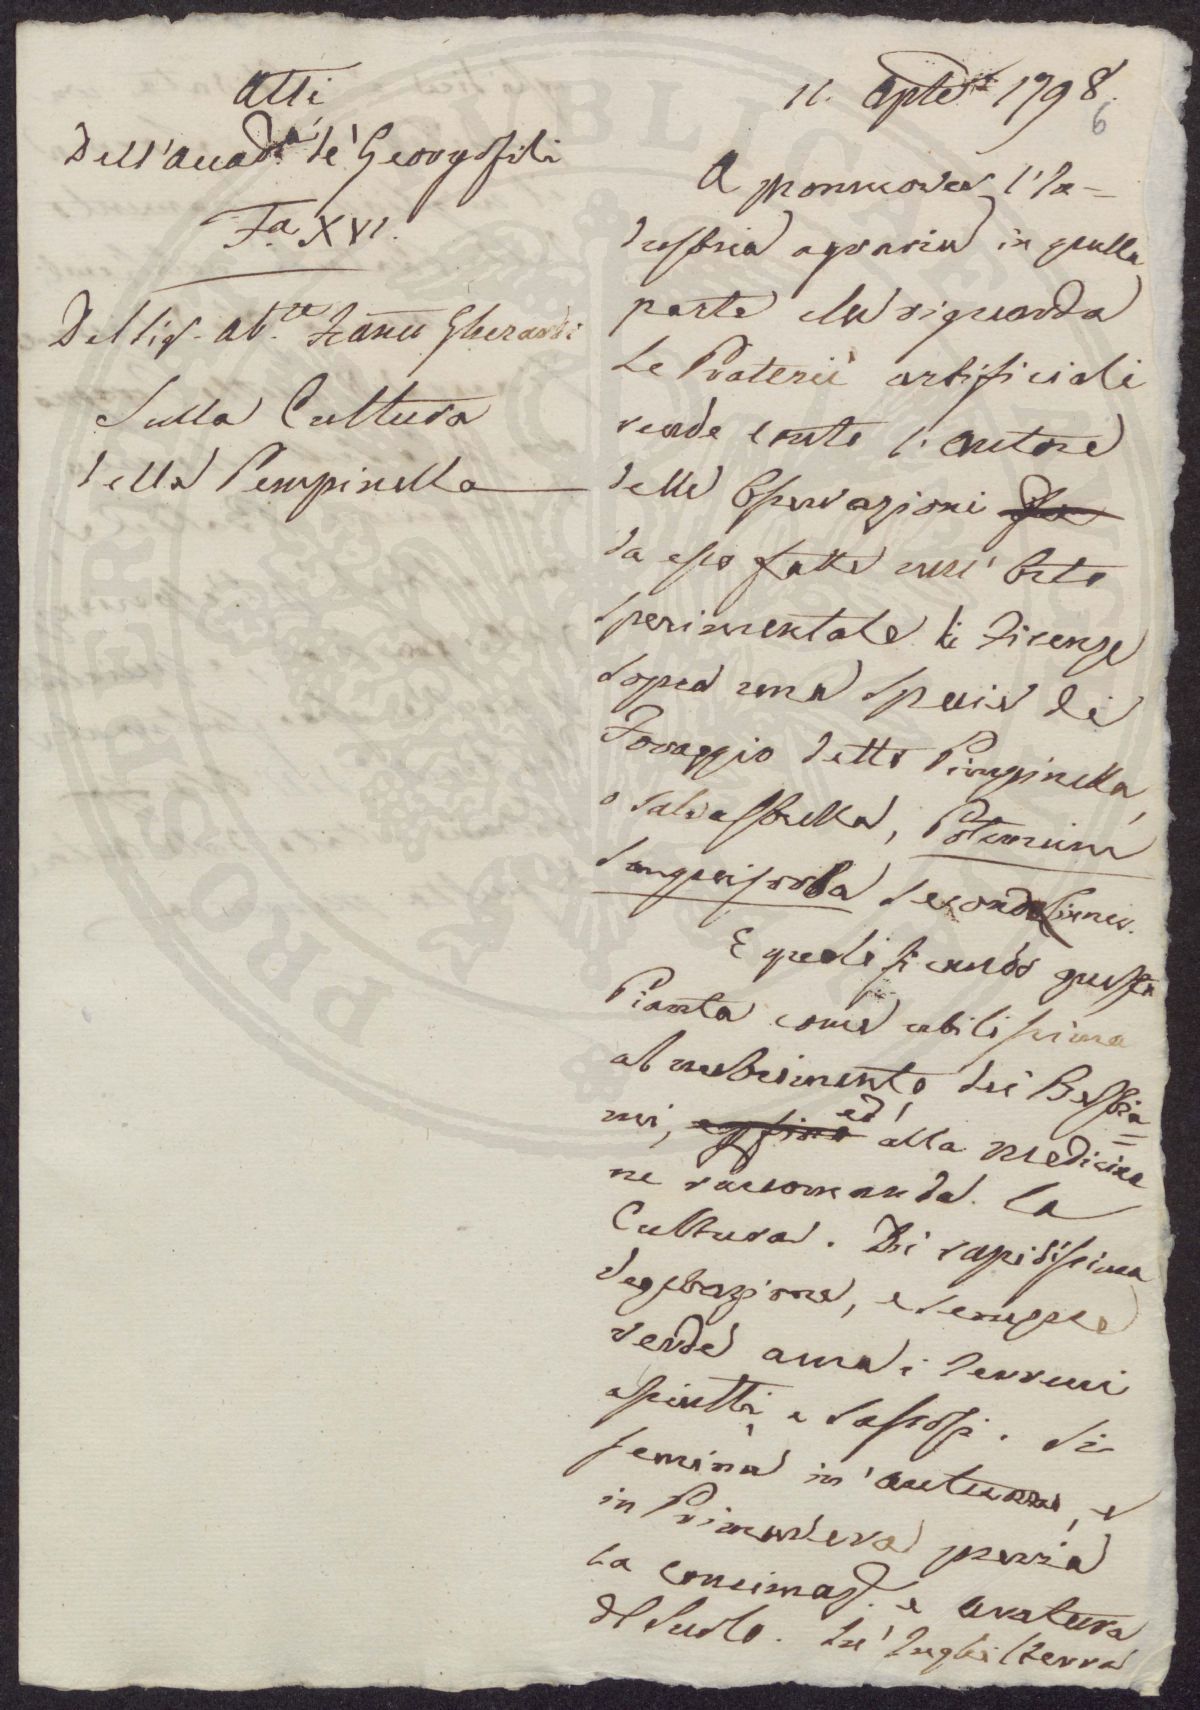 Atti
Dell'Accad.a de' Georgofili
F.a XVI.
Del Sig. Ab.te Gherardi
Sulla Cultura
della Pempinella
11. 1798.
6
A promuover l'In=
dustria agraria in quella
parte che riguarda
Le Praterie artificiali
rende conto l'autore
delle Osservazioni
da esso fatte nell' Orto
sperimentale di Firenze
sopra una specie di
Foraggio detto Pimpinella,
o Salvastrella, Poterium
Sanguisorba secondo Linneo.
E qualificando questa
Pianta come utilissima
al nutrimento dei Bestia=
mi, ed alla medicina
ne raccomanda la
Cultura. Di rapidissima
vegetazione, e sempre
verde ama i terreni
asciutti e sassosi. Si
semina in autunno, e
in Primavera previa
la concimaz. e aratura
del Suolo. In Inghilterra
PROPRIETÀ
PUBLICAE